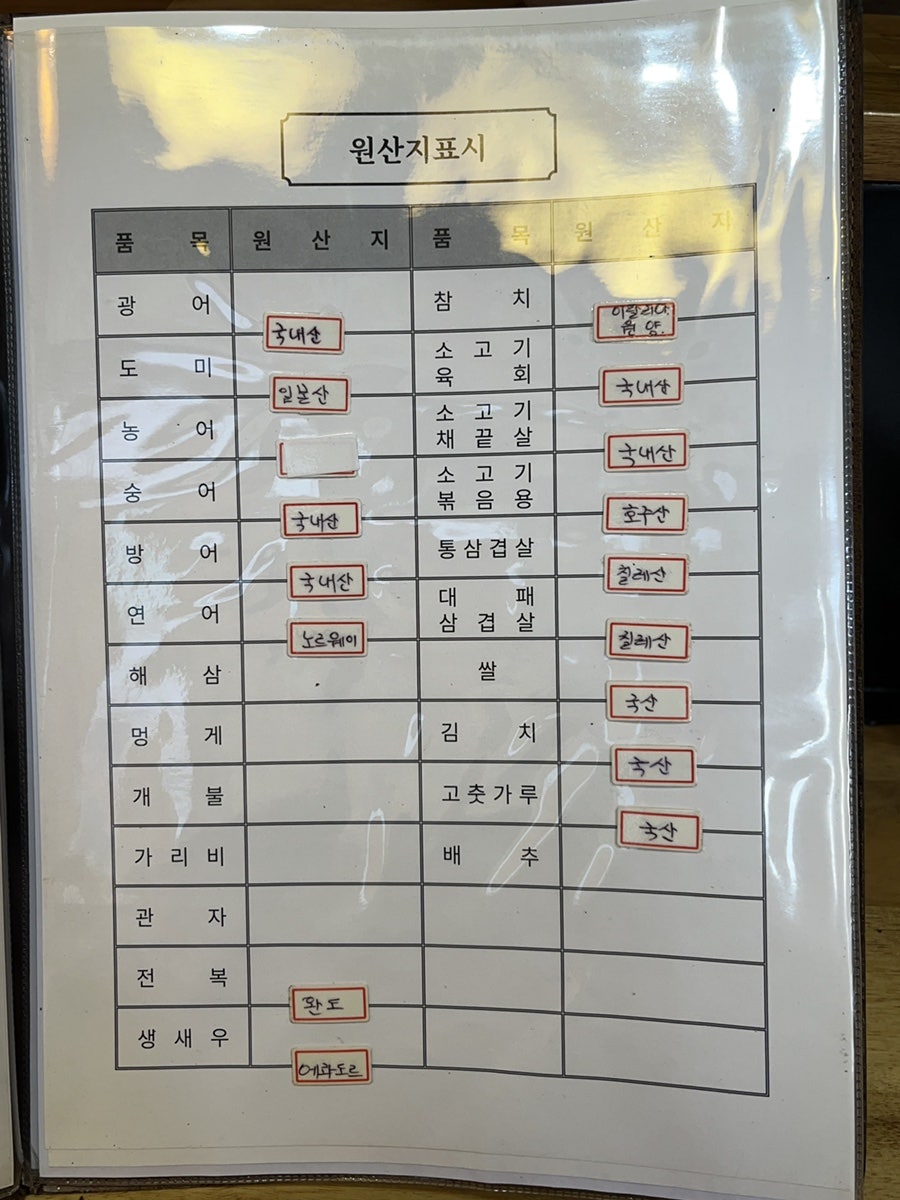 원산지표시
품 목 원 산 지 품 목 원 산 지
광 어 국내산 참 치 이탈리아. 원양.
도 미 일본산 소 고 기 육 회 국내산
농 어 소 고 기 채 끝 살 국내산
숭 어 국내산 소 고 기 볶 음 용 호주산
방 어 국내산 통삼겹살 칠레산
연 어 노르웨이 대 패 삼 겹 살 칠레산
해 삼 쌀 국산
멍 게 김 치 국산
개 불 고춧가루 국산
가 리 비 배 추
관 자
전 복 완도
생 새 우 에콰도르